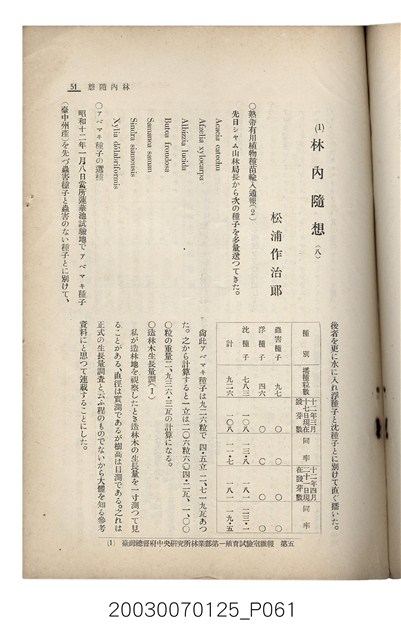 林內隨想
51
(1) 林內隨想(八)
松浦作治郎
○熱帶有用植物種苗輸入通報(2)
先日シヤム山林局長から次の種子を多量送つてきた。
Acacia catechu
Afzelia xylocarpa
Albizzia lucida
Butea frondosa
Samanea saman
Sindra siamensis
Xylia dolabriformis
○アベマキ種子の選種
昭和十二年一月八日當所蓮華池試驗地でアベマキ種子
(臺中州産)を先づ蟲害種子と蟲害のない種子とに別けて、
後者を更に水に入れ浮種子と沈種子とに別けて直ぐ播いた。
種別 播種粒數 十二年三月十七日現在發芽數 同率 十二年四月二十一日現在發芽數 同率
蟲害種子 九七 ○ ○ ○ ○
浮種子 四六 ○ ○ ○ ○
沈種子 七八三 一〇八 一三・八 一八一 二三・一
計 九二六 一〇八 一一・七 一八一 一九・五
尙此アベマキ種子は九二六粒で四・五立二、七一九瓦あつ
た。之から計算すると一立は二〇六粒六〇四・二瓦、一、〇〇
〇粒の重量二、九三六・三瓦の計算になる。
○造林木生長量調(1)
私が造林地を視察したとき造林木の生長量を一寸測つて見
ることがある、直徑は實測であるが樹高は目測である。之れは
正式の生長量調査と云ふ程のものでないから大體を知る參考
資料にと思つて連載することにした。
(1) 臺灣總督府中央研究所林業部第一殖育試驗室彙報 第五
20030070125_P061